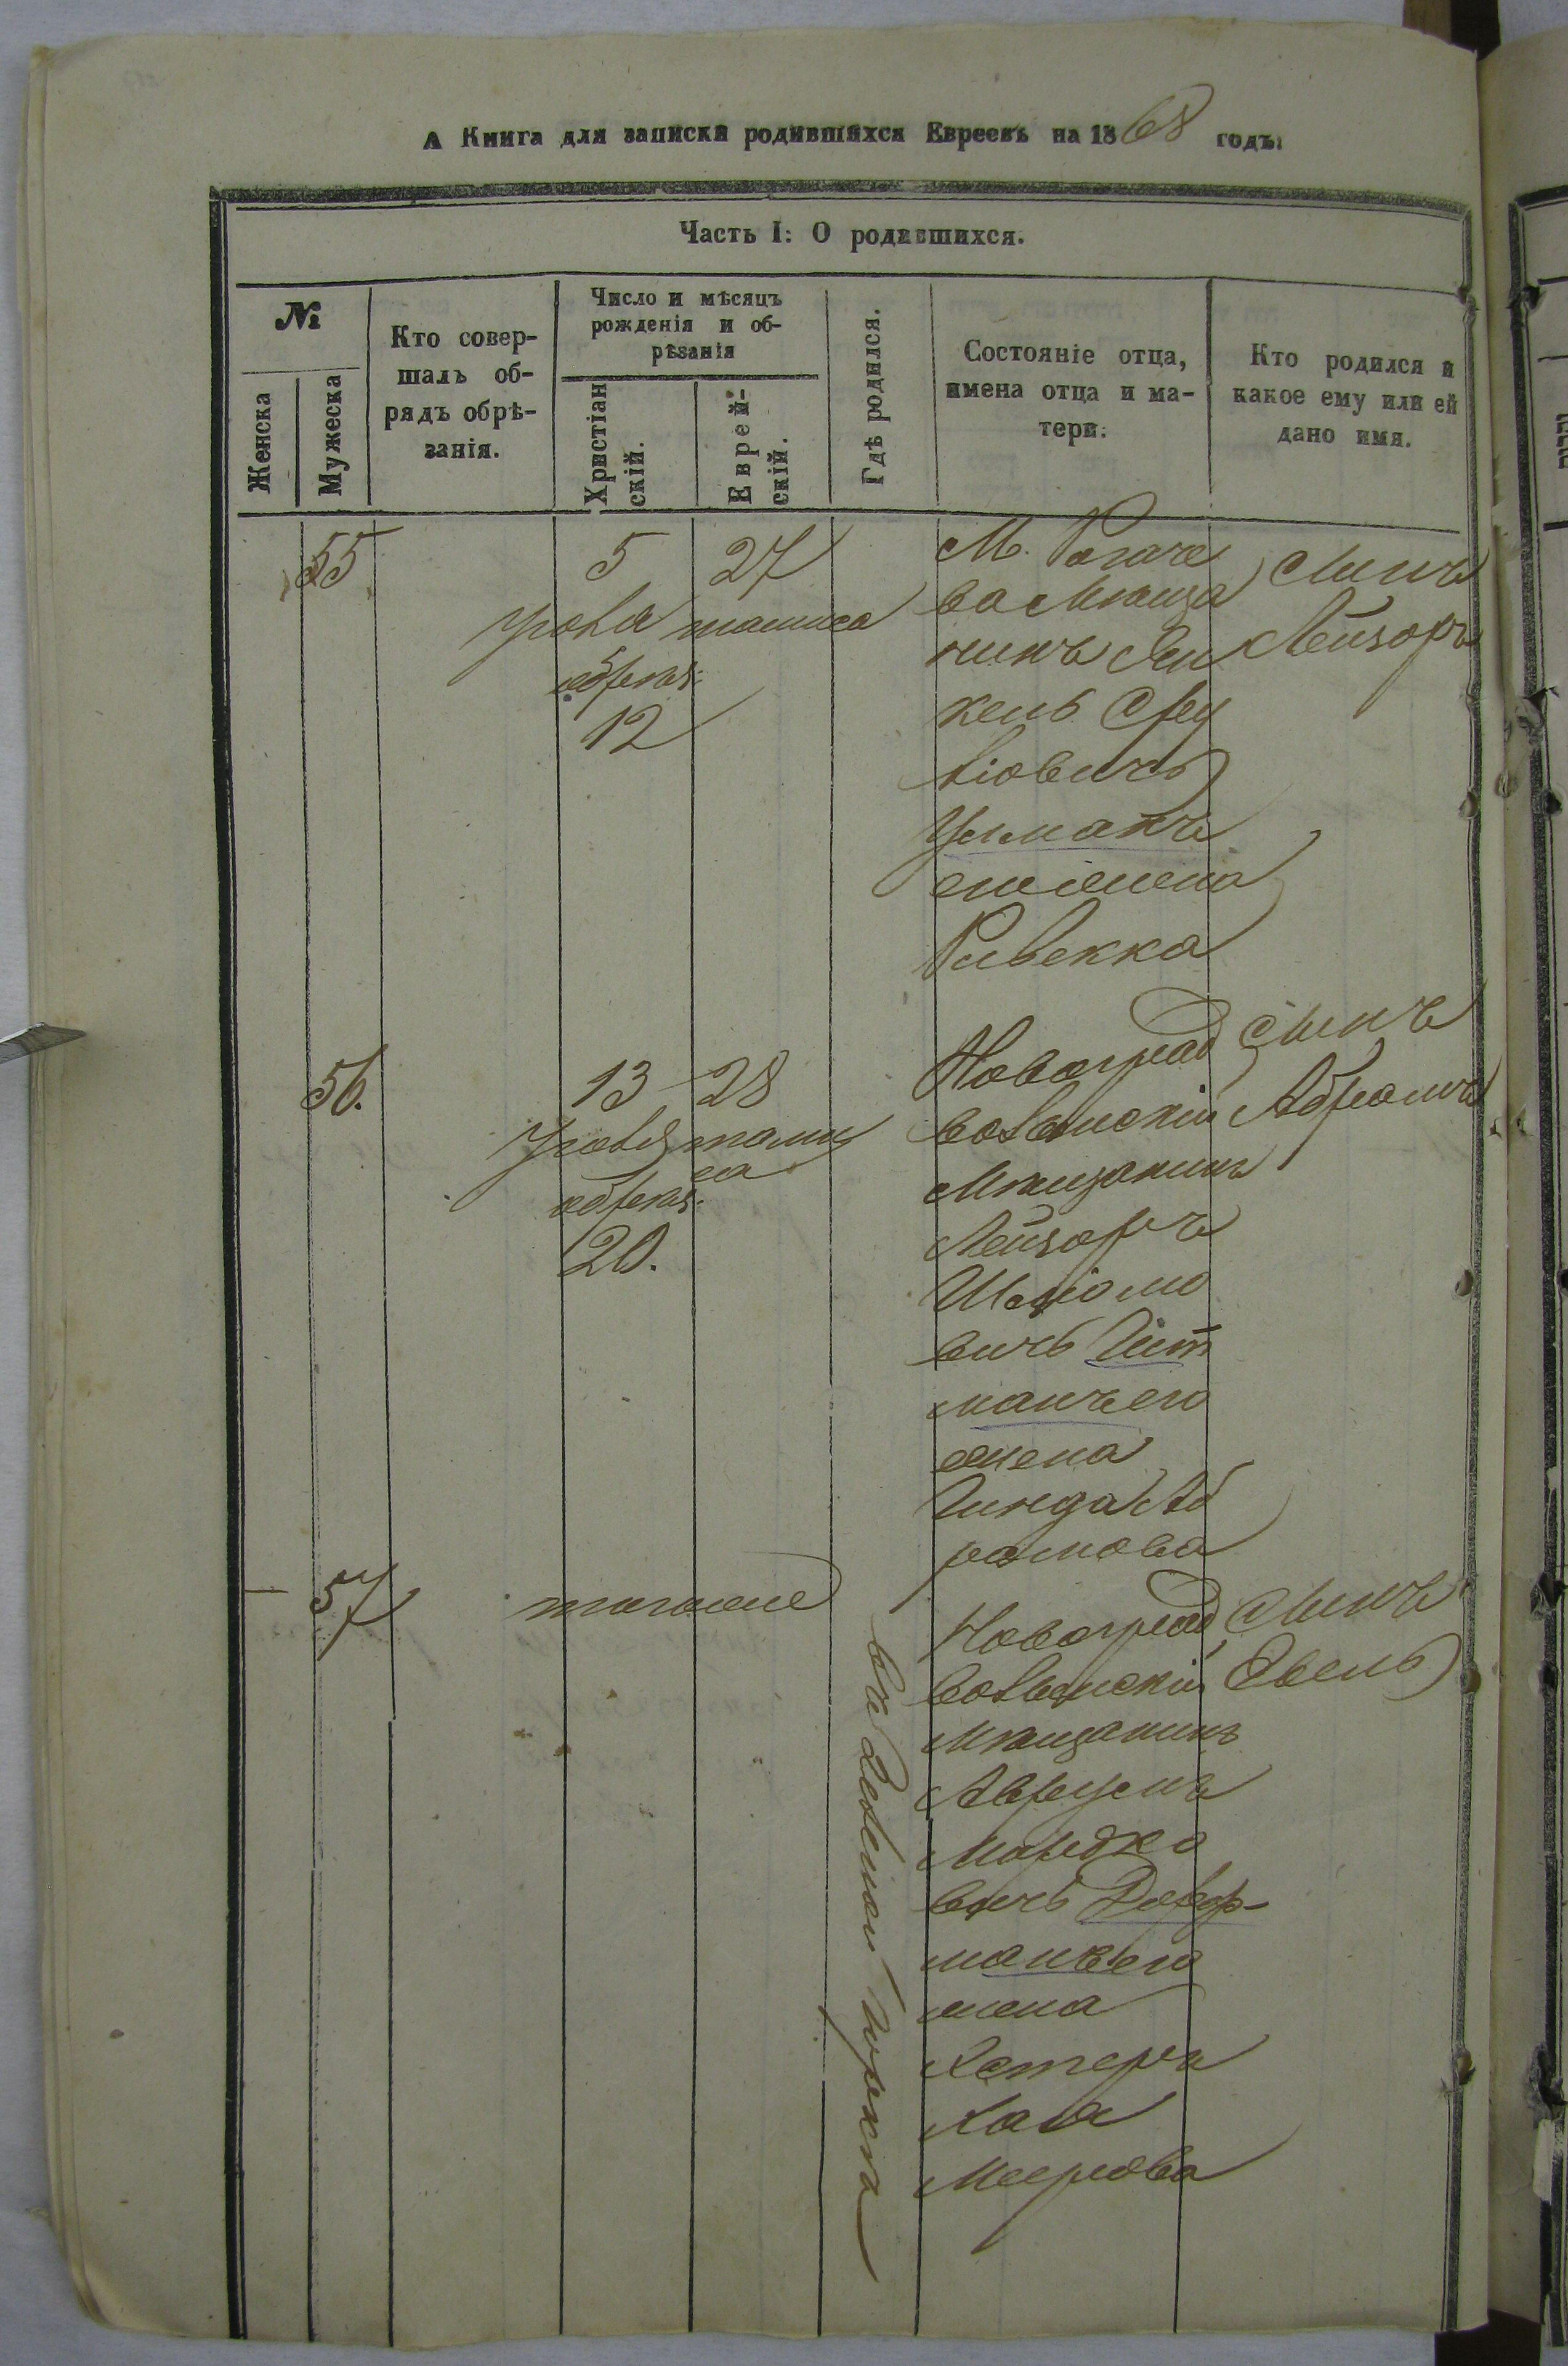 А Книга для записки родившихся Евреевъ на 1868 годъ.
Часть I: О родившихся.
№
Женска
Мужеска
Кто совер-
шалъ об-
рядъ обрѣ-
занія.
Число и мѣсяцъ
рожденія и об-
рѣзанія
Христіан
скій.
Еврей-
скій.
Гдѣ родился.
Состояніе отца,
имена отца и ма-
тери.
Кто родился и
какое ему или ей
дано имя.
55
5
Іюля
обрезан:
12
27
тамиса
М. Рогаче
ва Мѣща
нинъ Ян
кель
віовичь
Уманъ
его жена
Ривекка
Сынъ
Лейзоръ
56.
13
Іюля
обрезан:
20.
28
тами
са
Новоград
волынскій
Мѣщанинъ
Лейзоръ
Шліомо
вичь Гит
манъ его
жена
Гинда Аб
рамова
Сынъ
Абрамъ
57
тогоже
Новоград
волынскій
мѣщанинъ
Аврумъ
Мордко
вичь
манъ его
жена
Естеръ
Хая
Меерова
Сынъ